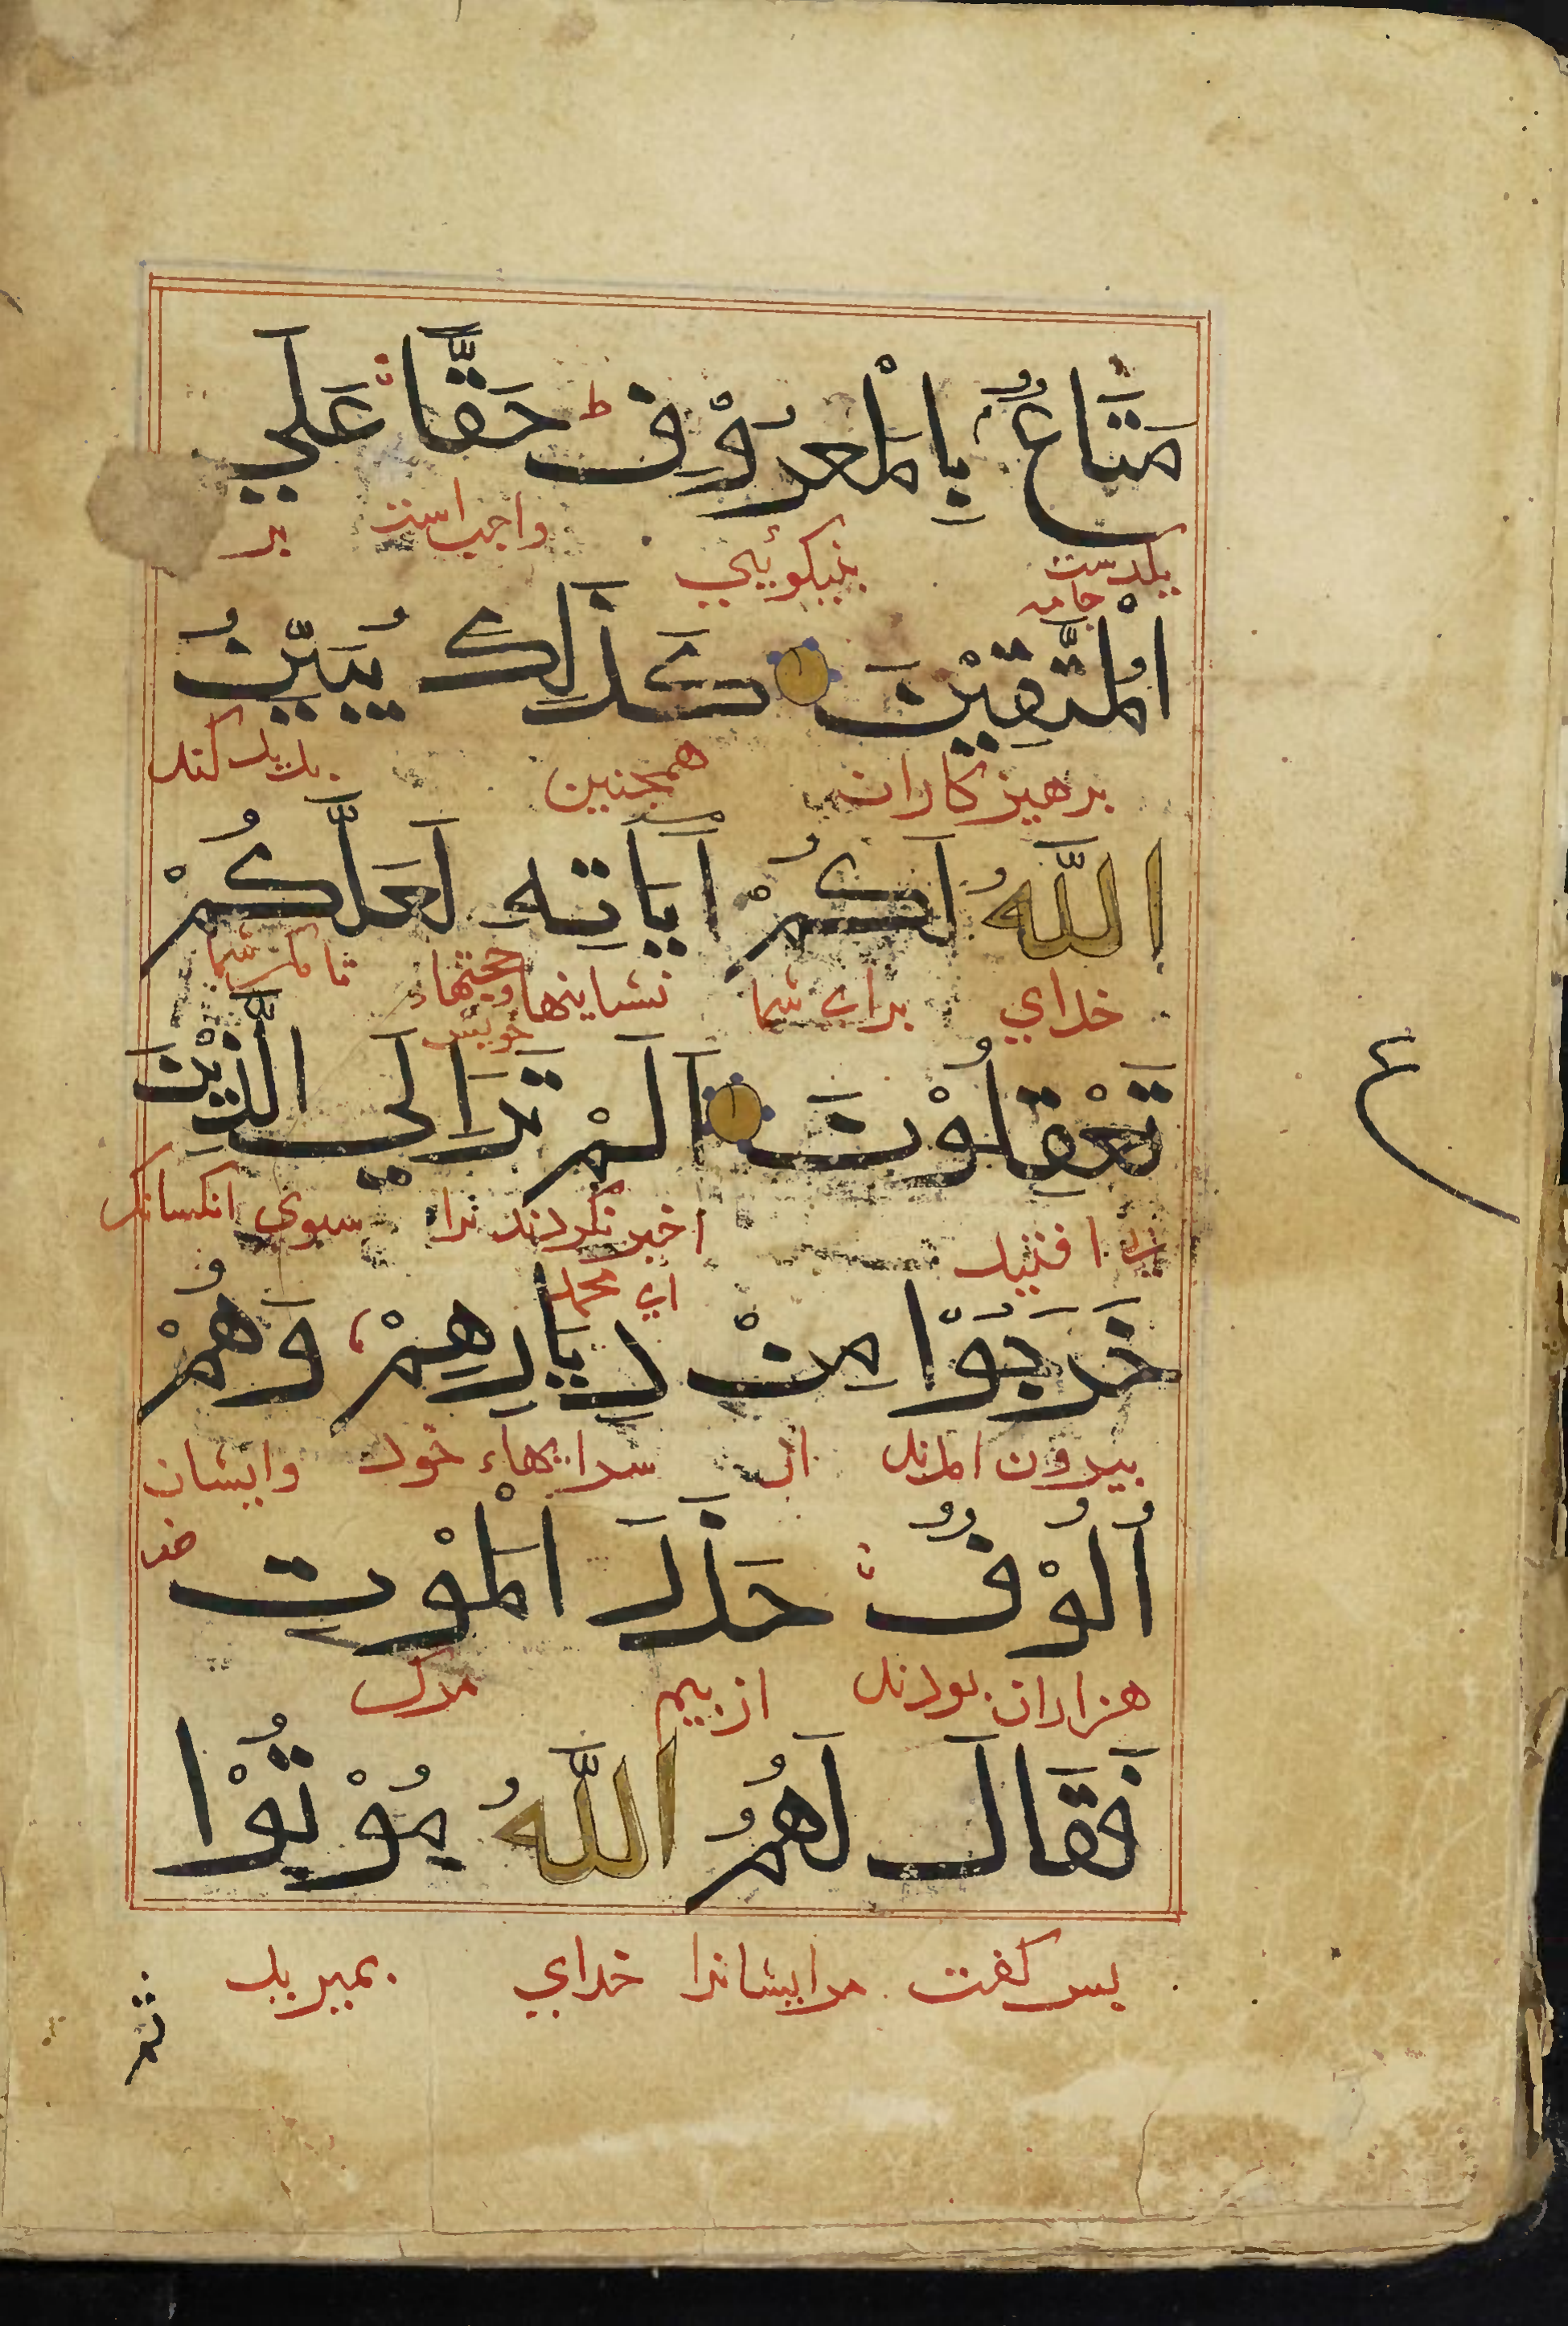 مَتَاعٌ بِالْمَعْرُوْفِ ط حَقًّا عَلَي
يكدست جامه بنيكوئي واجب است بر
الْمُتَّقِيْنَ كَذَلِكَ يُبَيِّنُ
برهيزكاران همجنين بديد كند
اللَّهُ لَكُمْ آيَاتِهِ لَعَلَّكُمْ
خداي براى شما نشاينها وحجتهاء خويش تا مكر شما
تَعْقِلُوْنَ اَلَمْ تَرَ اِلَي الَّذِيْنَ
ع
افتيد اخبر نكردند ترا سوى انكسانكه
اى محمد
خَرَجُوْا مِنْ دِيَارِهِمْ وَهُمْ
بيرون امدند از سرايهاء خود وايشان
اُلُوْفٌ حَذَرَ الْمَوْتِ
هزاران بودند از بيم مرك
فَقَالَ لَهُمُ اللَّهُ مُوْتُوْا
بس كفت مرايشانرا خداي بميريد
ثم